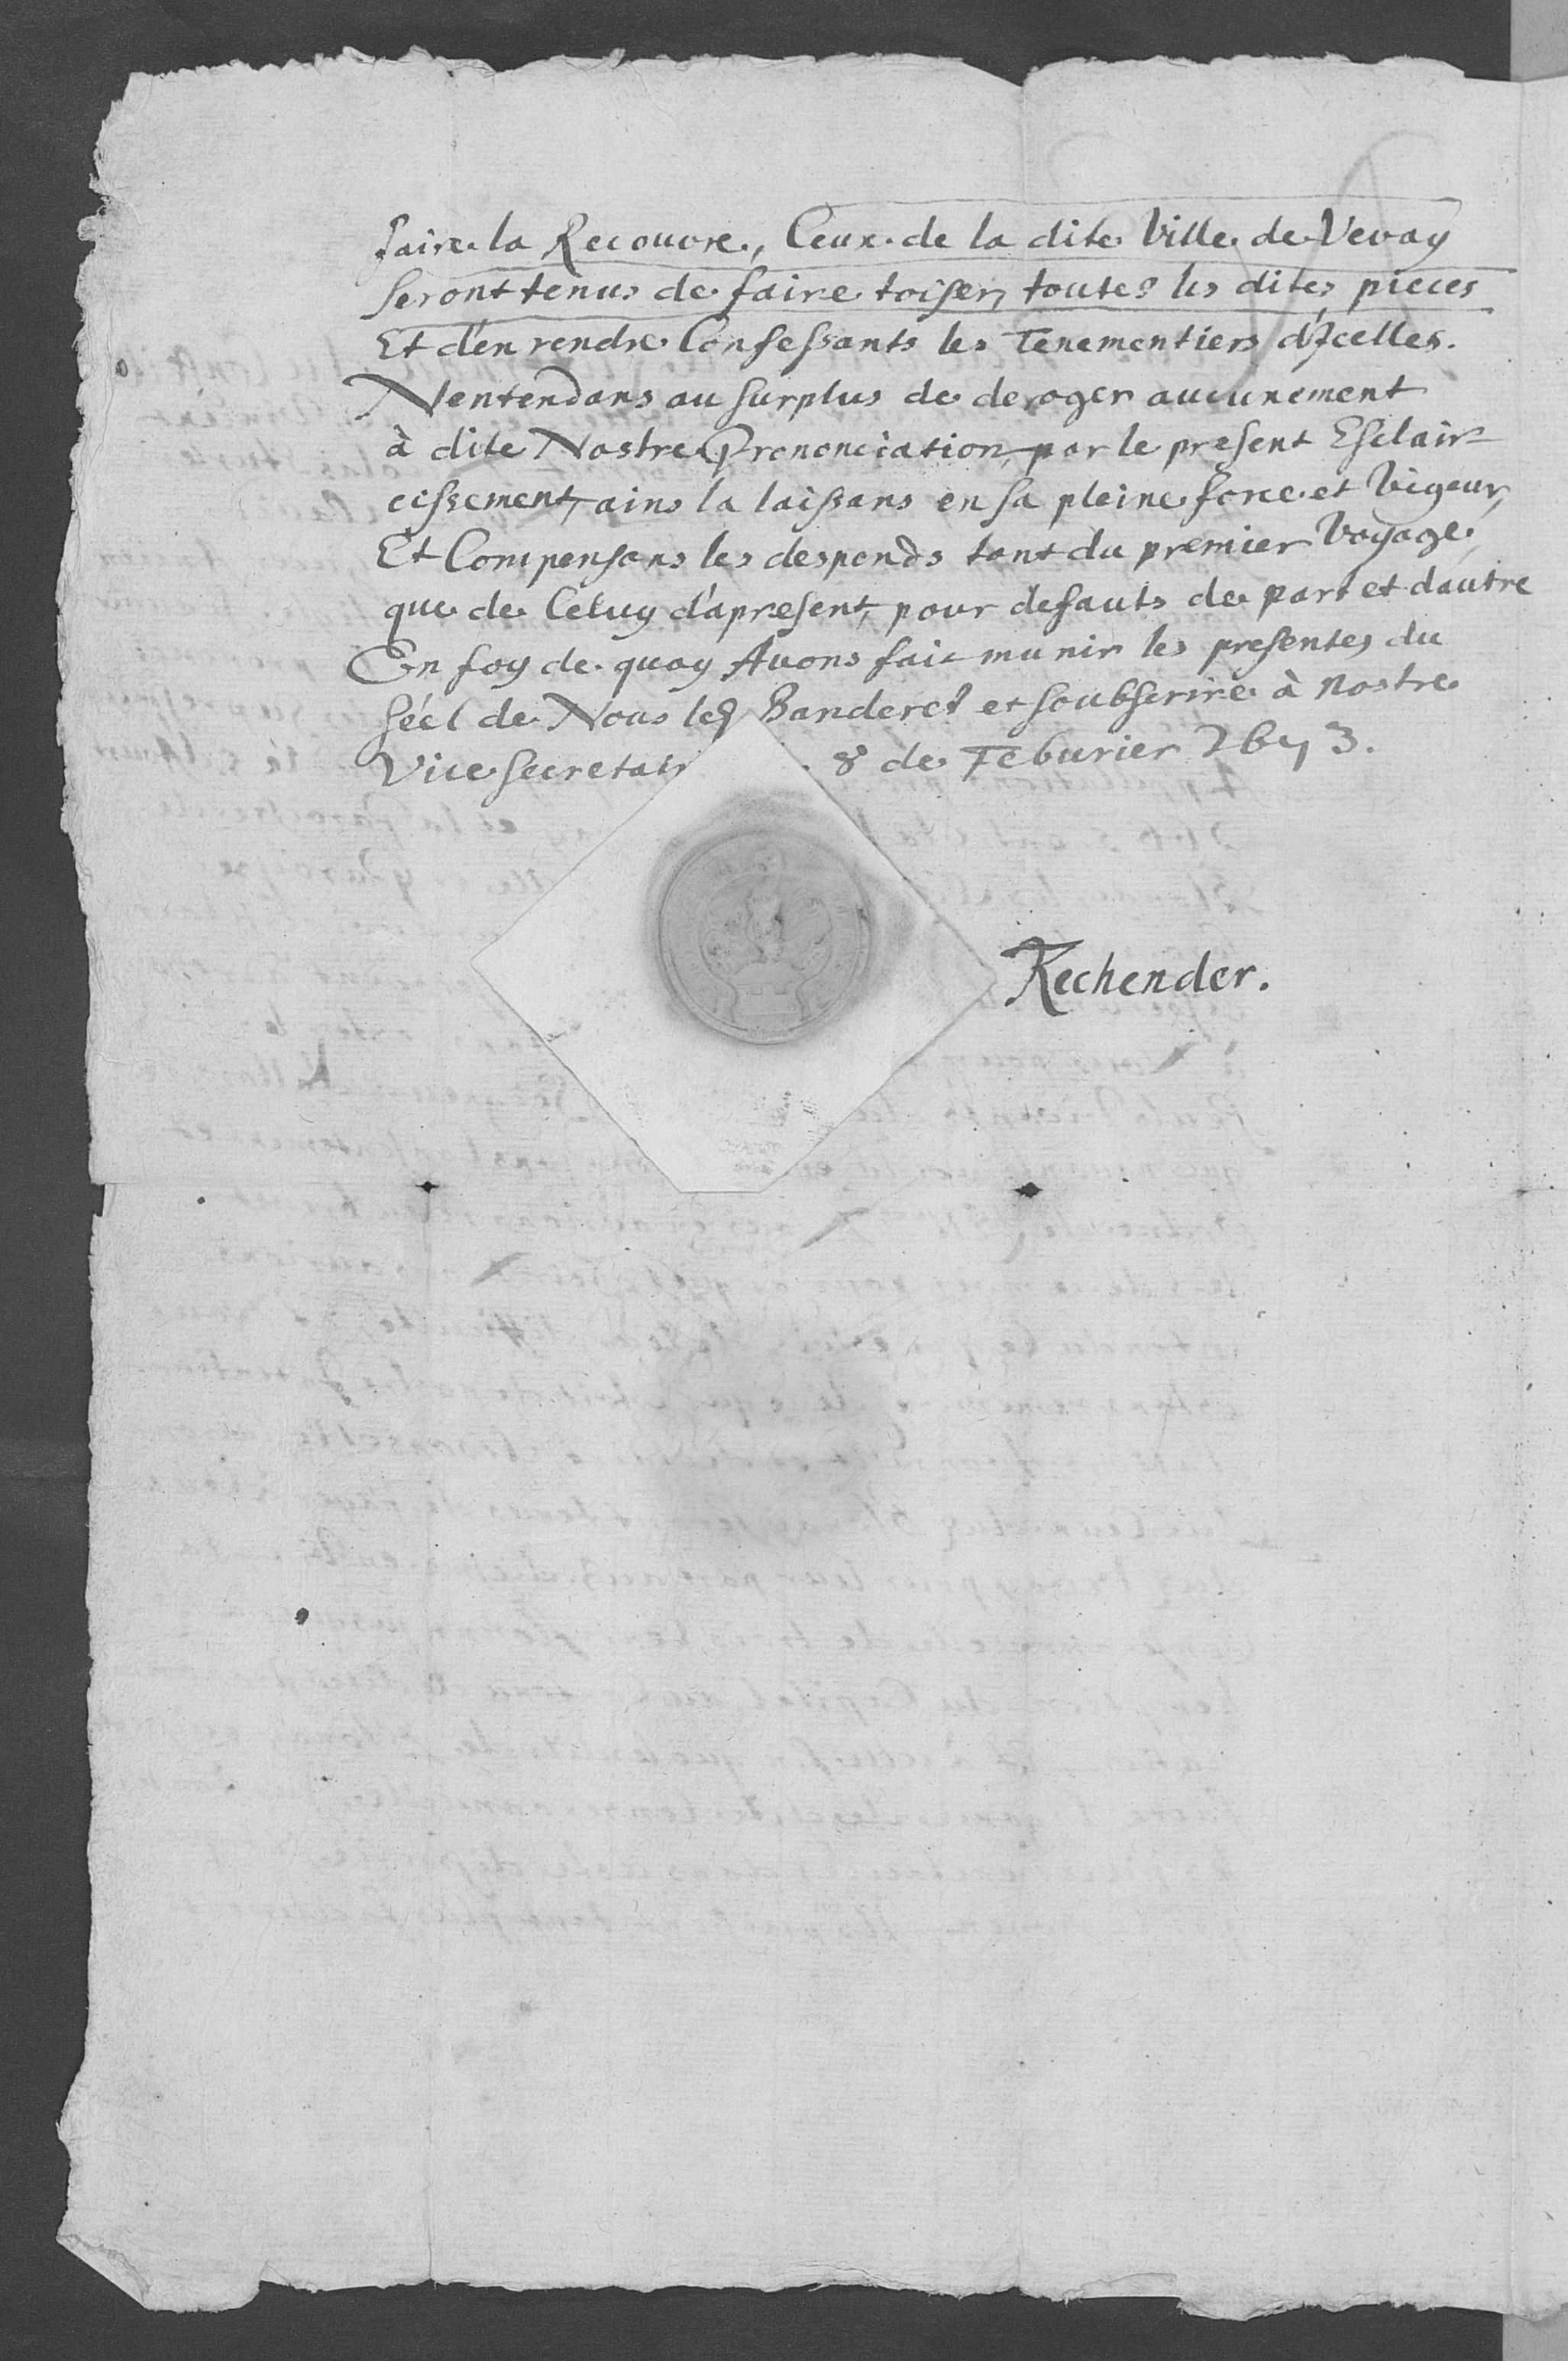 faire la Recouvre, Ceux de la dite Ville de Vevay
seront tenus de faire toiser, toutes les dites pieces
Et d'en rendre Confessants les Tenementiers d'Icelles.
N'entendans au surplus de deroger aucunement
à dite Nostre Prononciation, par le present Esclair-
cissement, ains la laissans en sa pleine force et Vigeur,
Et Compensans les despends tant du premier Voyage,
que de Celuy d'apresent, pour defauts de part et dautre
En foy de quoy Avons fait munir les presentes du
séel de Nous les Banderet et soubscrire à nostre
Vice secretair 8 de Feburier
Rechender.